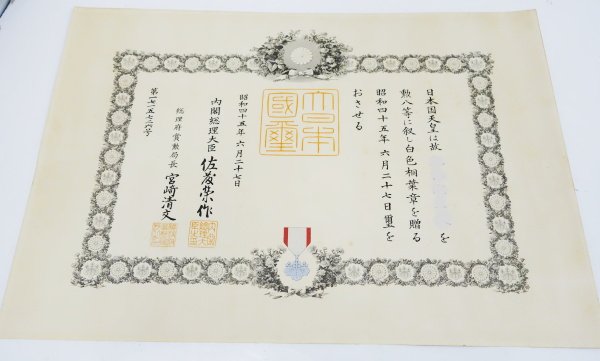 日本国天皇は故 を
勲八等に叙し白色桐葉章を贈る
昭和四十五年六月二十七日璽を
おさせる
大日本
國璽
昭和四十五年六月二十七日
内閣総理大臣 佐藤榮作
総理府賞勲局長 宮崎清文